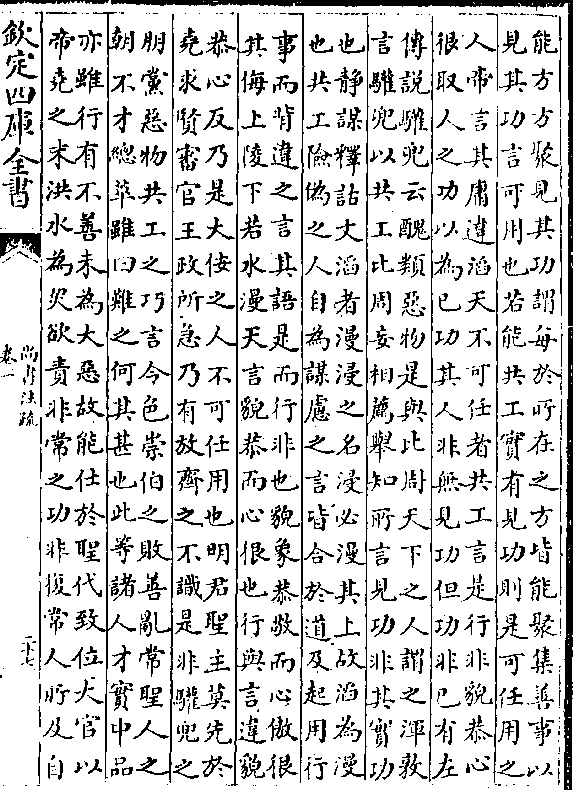 能方方聚見其功謂每於所在之方皆能聚集善事以
見其功言可用也若能共工實有見功則是可任用之
人帝言其庸違滔天不可任者共工言是行非貌恭心
很取人之功以為己功其人非無見功但功非己有左
傳說驩兜云醜類惡物是與比周天下之人謂之渾敦
言驩兜以共工比周妄相薦舉知所言見功非其實功
也靜謀釋詁文滔者漫漫之名浸必漫其上故滔為漫
也共工險偽之人自為謀慮之言皆合於道及起用行
事而背違之言其語是而行非也貌象恭敬而心傲很
其侮上陵下若水漫天言貌恭而心很也行與言違貌
恭心反乃是大佞之人不可任用也明君聖主莫先於
堯求賢審官王政所急乃有放齊之不識是非驩兜之
朋黨惡物共工之巧言令色崇伯之敗善亂常聖人之
朝不才總萃雖曰難之何其甚也此等諸人才實中品
亦雖行有不善未為大惡故能仕於聖代致位大官以
帝堯之末洪水為災欲責非常之功非復常人所及自
欽定四庫全書
尚書注疏
卷一
二十七